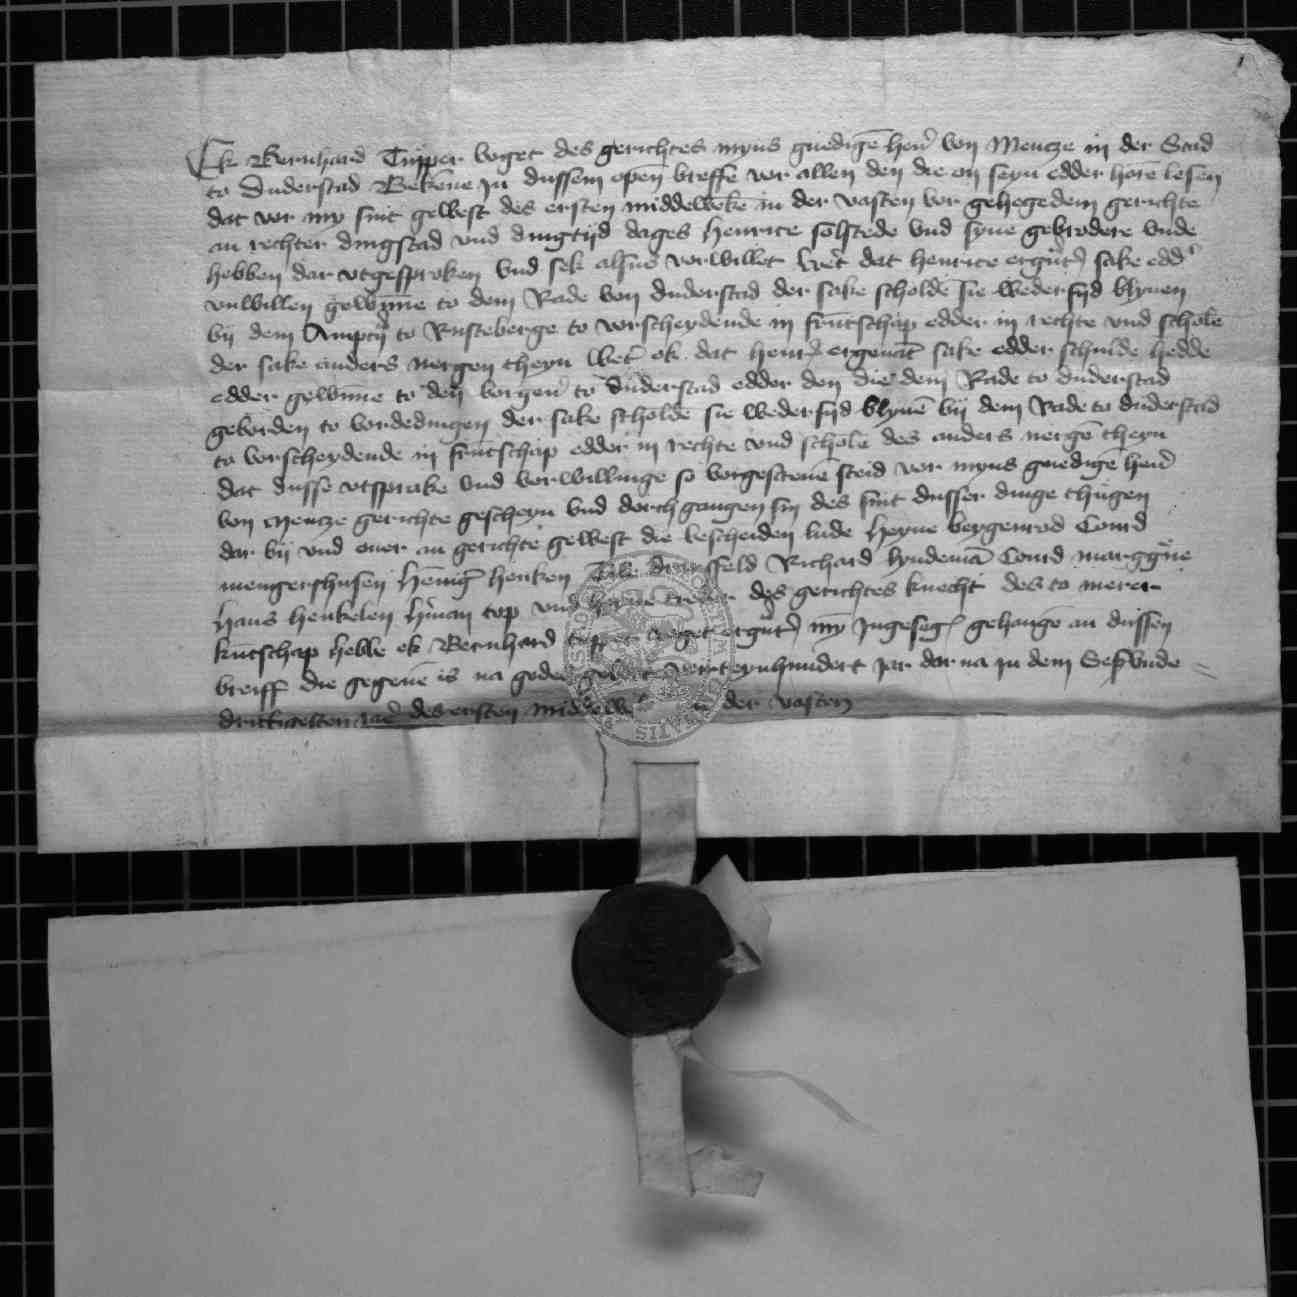 Ek Bernhard Tupper voget des gerichtes myns gnedigē herñ von Mencze in der Stad
to Duderstad Bekēne jn dussem opēn breffe vor allen den die on seyn edder horē lesen
dat vor my sint gewest des ersten middeweke in der vasten vor gehegedem gerichte
an rechter dingstad vnd dingtijd dages Henrice solstede vnd syne gebrodere vnde
hebben dar vtgesproken vnd sek alsus vorwillet wer dat henrice ergnt sake edd
vnwillen gewūne to dem Rade von duderstad der sake scholde sie wedersijd blyuen
bij dem Amptij to Rusteberge to vorscheydende in frūtschap edder in rechte vnd scholē
der sake anders nergen theyn Wer ok dat henr ergenāt sake edder schulde hedde
edder gewūne to den borgern to duderstad edder den die dem Rade to duderstad
gebörden to vordedingen der sake scholde sie wedersijd blyuē bij dem Rade to duderstad
to vorscheydende in frūtschap edder in rechte vnd scholē des anders nergē theyn
dat dusse vtsprake vnd vorwillinge so vorgescreuē steid vor myns gnedigē herñ
von Mencze gerichte gescheyn vnd dorch gangen sin des sint dusser dinge thugen
dar bij vnd ouer an gerichte gewest die bescheiden lude Heyne bergenrod Conrd
mengershusen Hēnig henken Tile dransfeld Richard lyndemā Conrd marggue
Hans henkelen Hman top vnd heyne des gerichtes knecht des to merer
kūtschap hebbe ek Bernhard voget ergnt my Jngeseg gehangē an dussen
breiff die gegeuē is na godes gebort verteynhundert jar dar na jn dem Sesvnde
drittigesten jare des ersten middeweke in der vasten